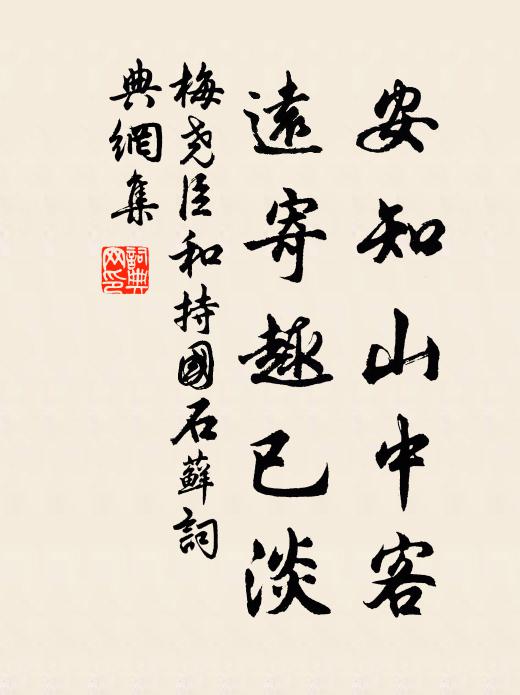 安知山中客
遠寄趣已淡
梅堯臣和持國石蘚詞
典網集
詞典
网印